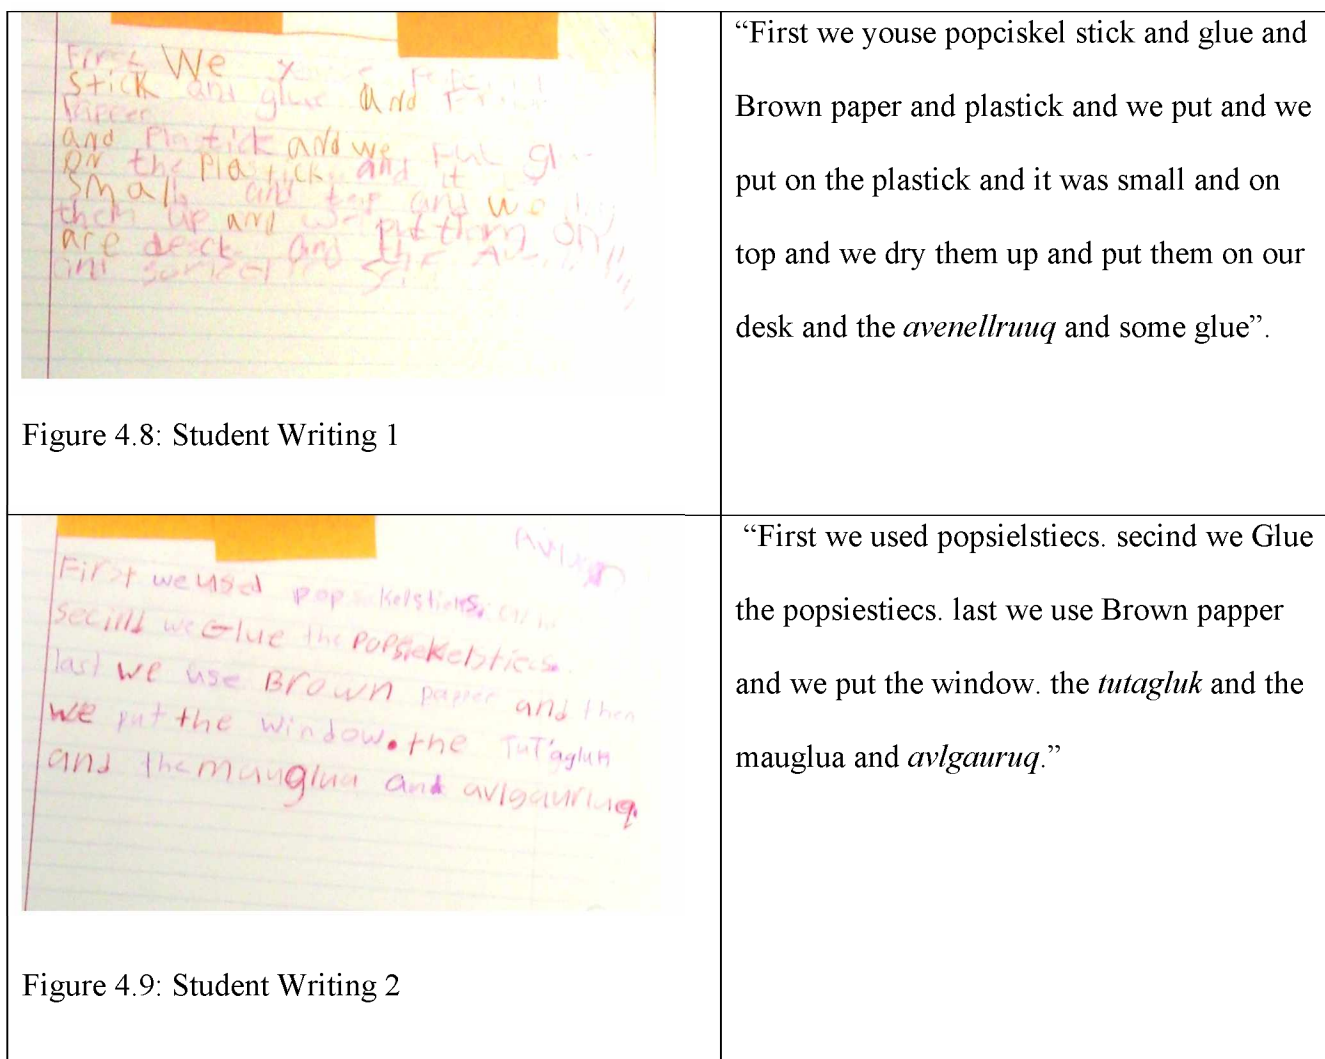 First We
stick and glue and
papper
and Plastick and we Put
on the Plastick and it
small and top and we dry
them up and we put them on
are desck and the
“First we youse popciskel stick and glue and
Brown paper and plastick and we put and we
put on the plastick and it was small and on
top and we dry them up and put them on our
desk and the avenellruuq and some glue”.
Figure 4.8: Student Writing 1
First we used popsikelstiecs.
secind we Glue the popsiekelstiecs.
last we use Brown papper and then
we put the window. the
and the mauglua and avlgauruq.
“First we used popsielstiecs. secind we Glue
the popsiestiecs. last we use Brown papper
and we put the window. the tutagluk and the
mauglua and avlgauruq.”
Figure 4.9: Student Writing 2